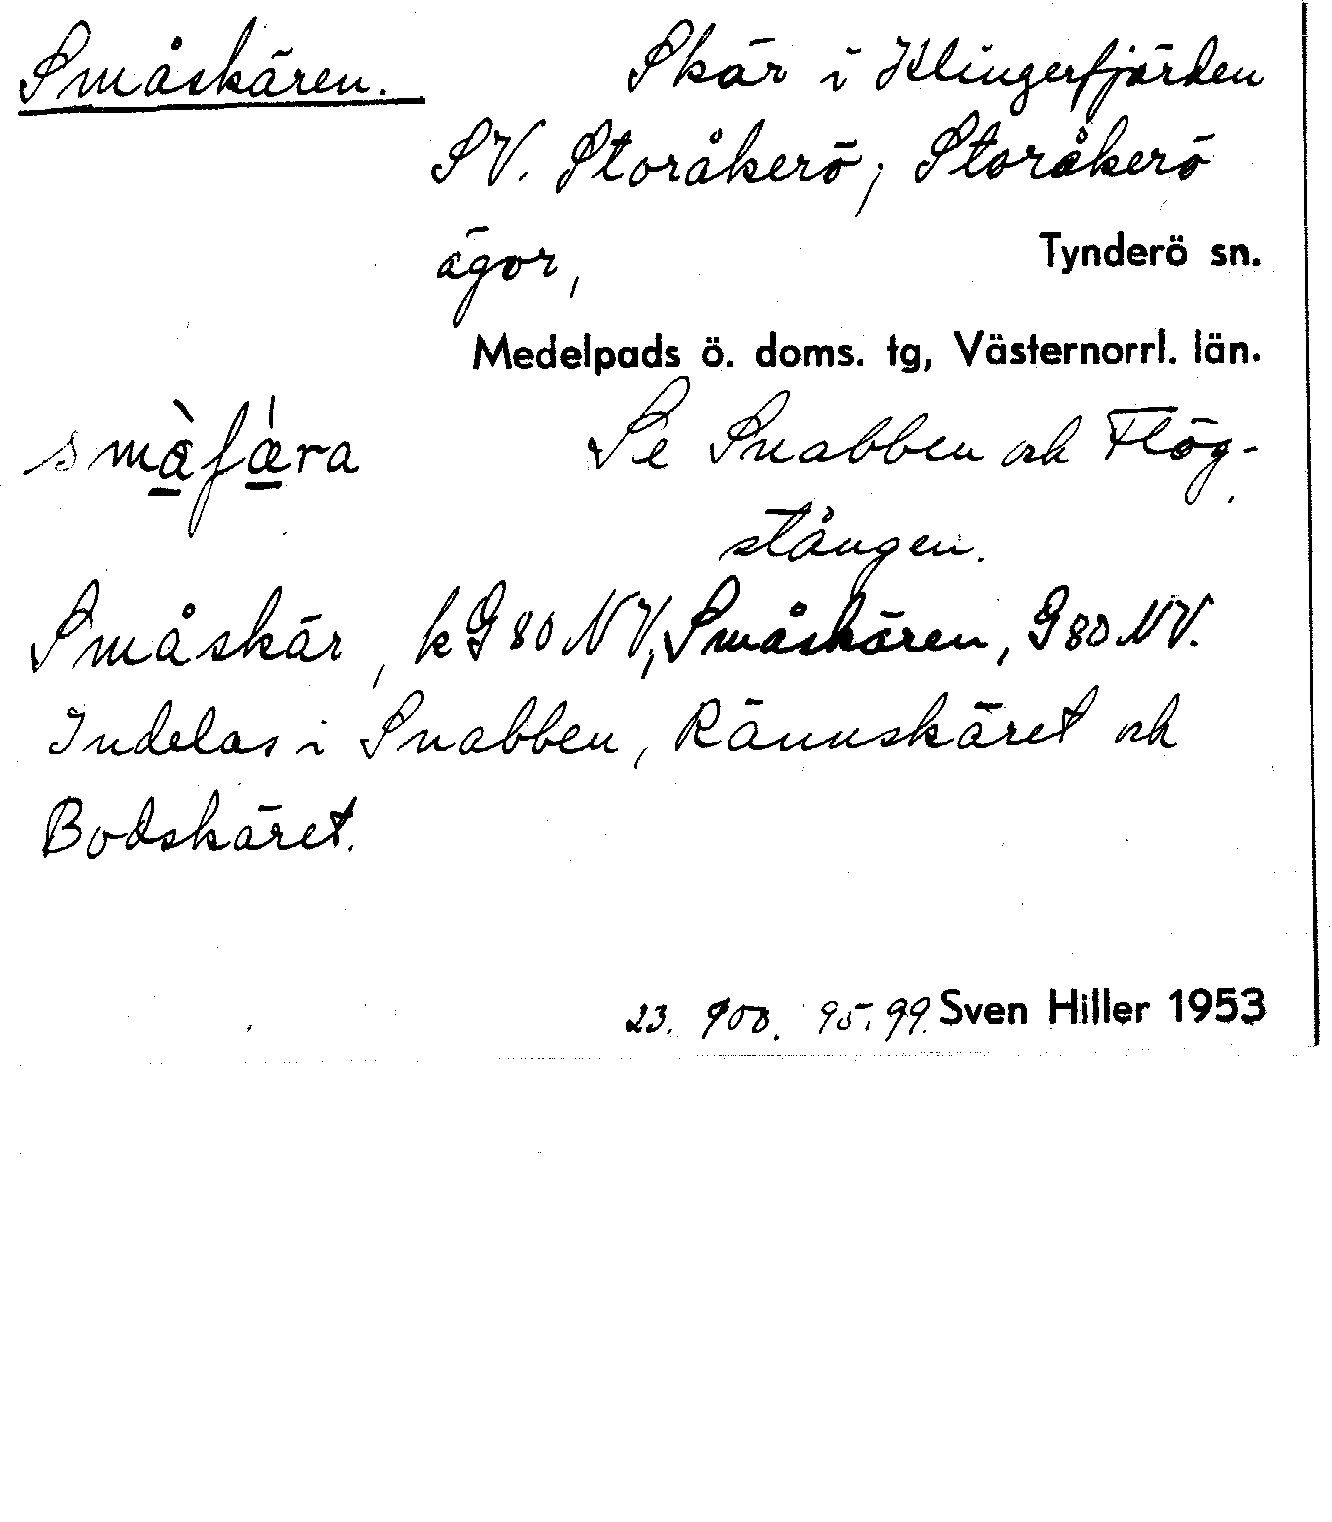 Småskären. Skär i Klingerfjärden
SV. Storåkerö; Storåkerö
ägor, Tynderö sn.
Medelpads ö. doms. tg, Västernorrl. län.
småfæra Se Snabben och Flög-
stången.
Småskär, kG 80 NV, Småskären, G 80 NV.
Indelas i Snabben, Rännskäret och
Bodskäret.
23. 900. 95. 99. Sven Hiller 1953